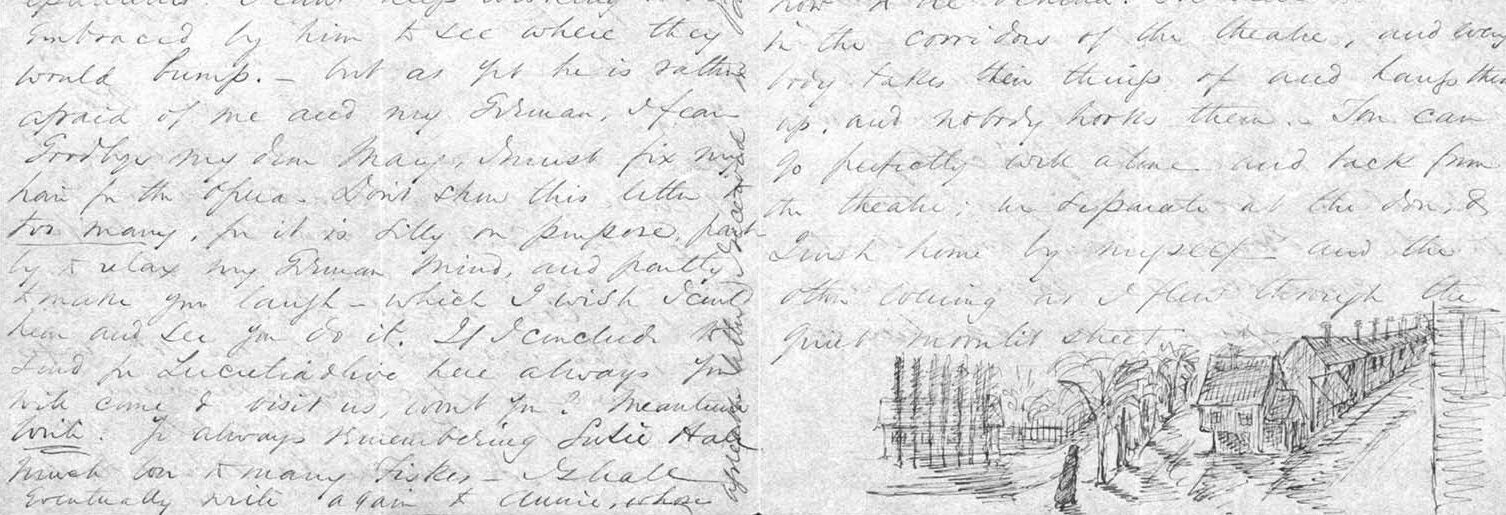 embraced by him to see where they
would bump. – but as yet he is rather
afraid of me and my German, I fear
Goodbye my dear Mary, I must fix my
hair for the opera. Don't show this letter
too many, for it is silly on purpose, part-
ly to relax my German mind, and partly
to make you laugh – which I wish I could
hear and see you do it. If I conclude to
send for Lucretia & live here always you
will come & visit us, wont you? Meantime
write. Yr always remembering Susie Hale
Much love to many Fiskes – I shall
eventually write again to Annie, whose
in the corridors of the theatre, and every
body takes their things of and hangs them
up, and nobody hooks them. – You can
go perfectly well alone and back from
the theatre; we separate at the door, &
I rush home by myself – and the
other evening as I flew through the
quiet moonlit street